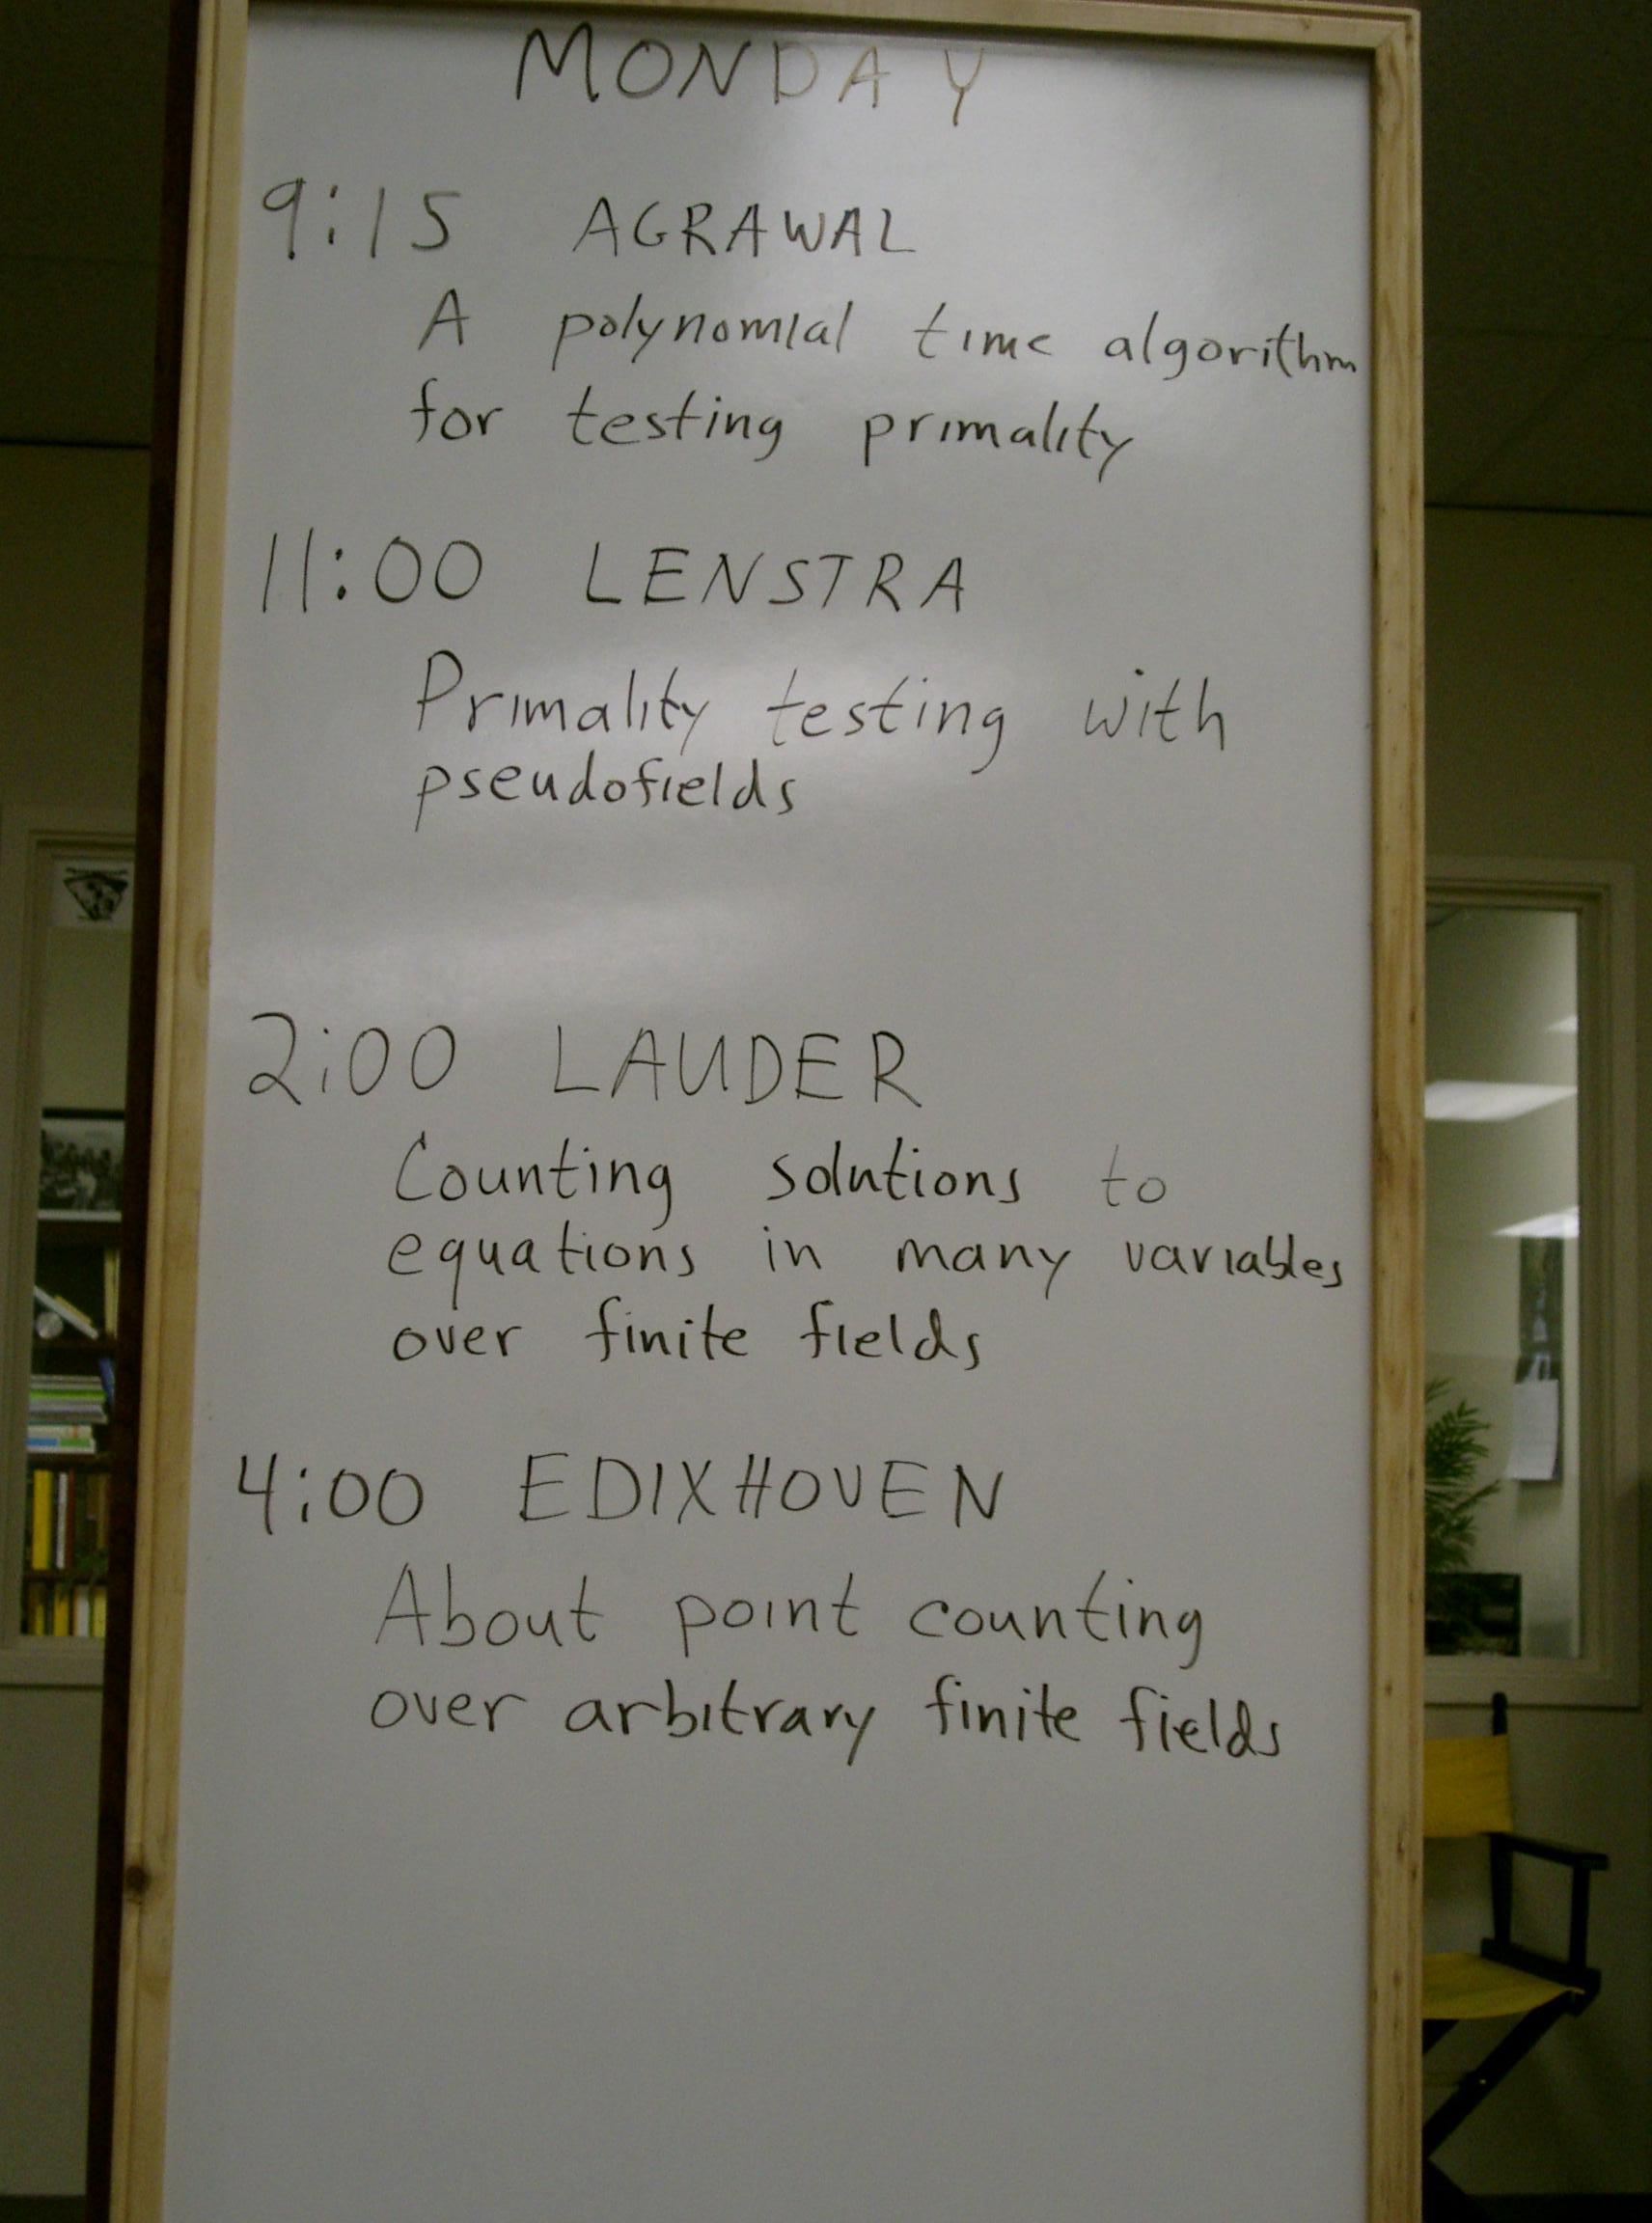 MONDAY
9:15 AGRAWAL
A polynomial time algorithm
for testing primality
11:00 LENSTRA
Primality testing with
pseudofields
2:00 LAUDER
Counting solutions to
equations in many variables
over finite fields
4:00 EDIXHOVEN
About point counting
over arbitrary finite fields